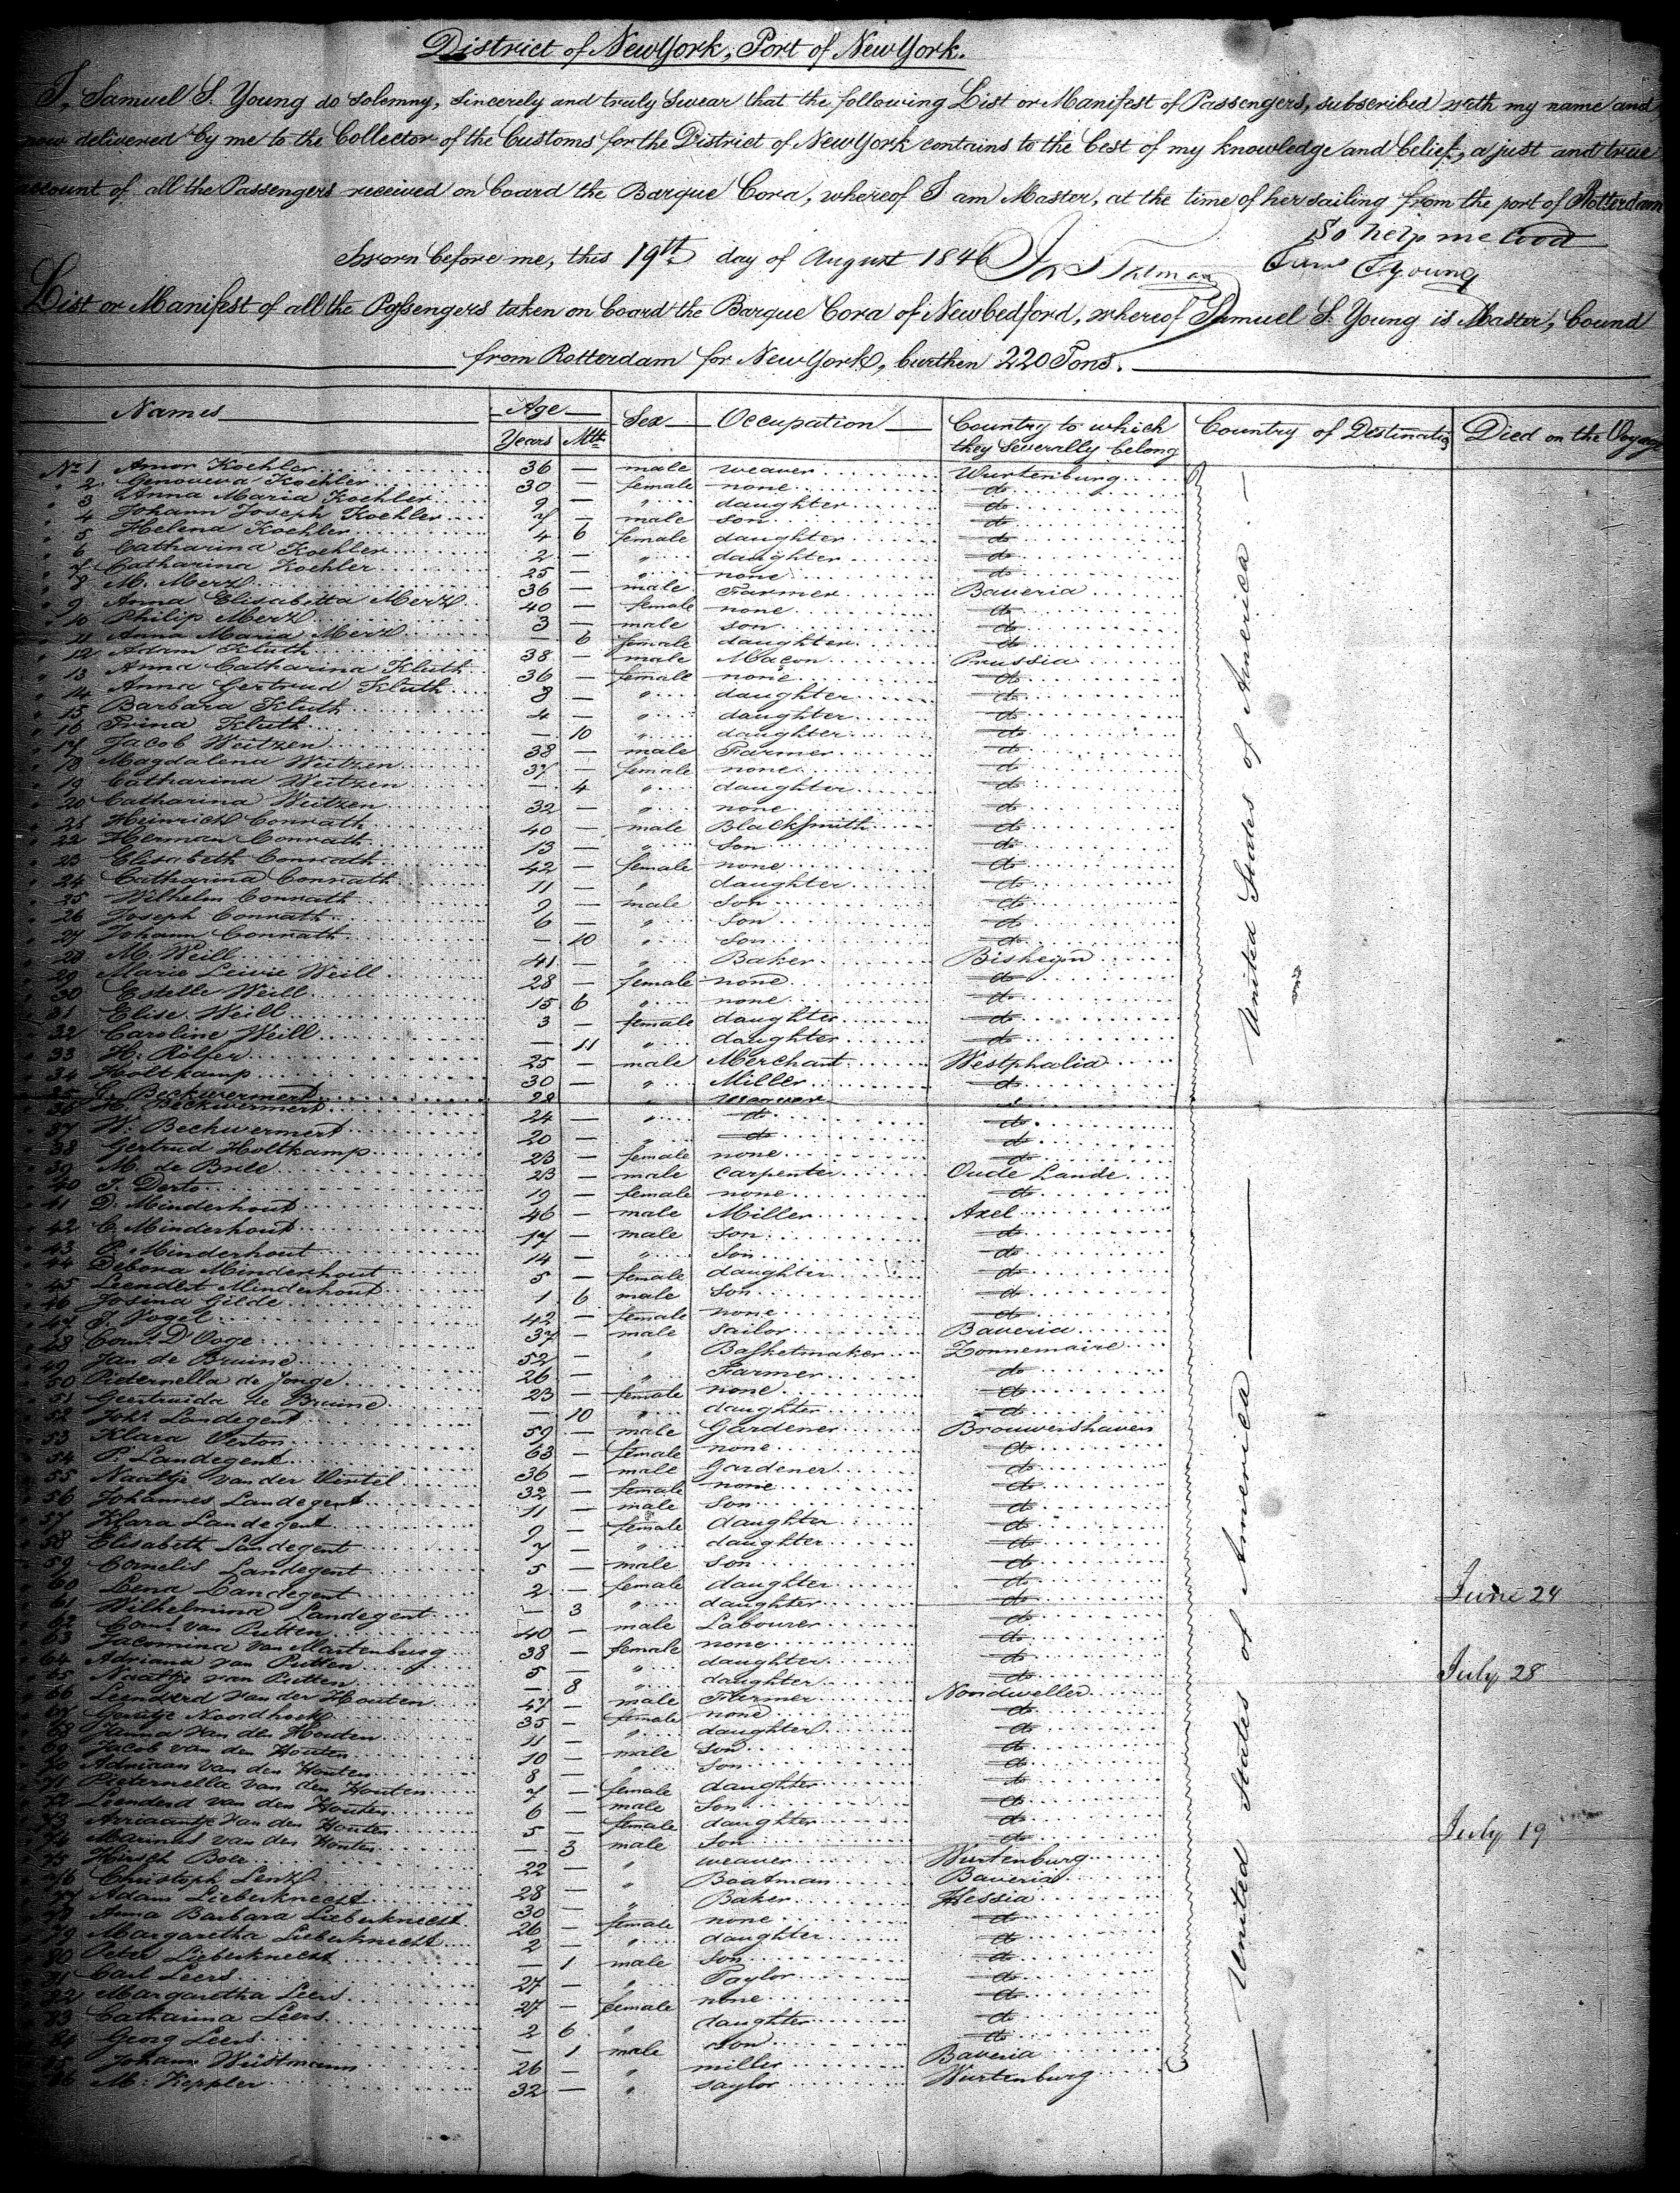 District of New York, Port of New York.
I, Samuel S. Young do solemny, sincerely and truly swear that the following List or Manifest of Passengers, subscribed with my name and
now delivered by me to the Collector of the Customs for the District of New York contains to the best of my knowledge and belief, a just and true
account of all the Passengers received on board the Barque Cora, whereof I am Master, at the time of her sailing from the port of Rotterdam
So help me God
Sworn before me, this 19th day of August 1846
Young
List or Manifest of all the Passengers taken on board the Barque Cora of Newbedford, whereof Samuel S. Young is Master, bound
from Rotterdam for New York, burthen 220 Tons.
Names Age Sex Occupation Country to which they severally belong Country of Destination Died on the Voyage
Years Mth
No 1 Amor Koehler 36 — male weaver Wurtenburg
" 2 Genoveva Koehler 30 — female none do
" 3 Anna Maria Koehler 9 — " daughter do
" 4 Johann Joseph Koehler 7 — male son do
" 5 Helena Koehler 4 6 female daughter do
" 6 Catharina Koehler 2 — " daughter do
" 7 Catharina Koehler 25 — " none do
" 8 M. Merz 36 — male Farmer Baveria
" 9 Anna Elisabetta Merz 40 — female none do
" 10 Philip Merz 3 — male son do
" 11 Anna Maria Merz — 6 female daughter do
" 12 Adam Kluth 38 — male Maçon Prussia
" 13 Anna Catharina Kluth 36 — female none do
" 14 Anna Gertrud Kluth 8 — " daughter do
" 15 Barbara Kluth 4 — " daughter do
" 16 Trina Kluth — 10 " daughter do
" 17 Jacob Weitzen 38 — male Farmer do
" 18 Magdalena Weitzen 37 — female none do
" 19 Catharina Weitzen — 4 " daughter do
" 20 Catharina Weitzen 32 — " none do
" 21 Heinrich Conrath 40 — male Blacksmith do
" 22 Herman Conrath 13 — " Son do
" 23 Elisabeth Conrath 42 — female none do
" 24 Catharina Conrath 11 — " daughter do
" 25 Wilhelm Conrath 9 — male Son do
" 26 Joseph Conrath 6 — " Son do
" 27 Johann Conrath — 10 " Son do
" 28 M. Weill 41 — " Baker
" 29 Marie Lewie Weill 28 — female none do
" 30 Estelle Weill 15 6 " none do
" 31 Elise Weill 3 — female daughter do
" 32 Caroline Weill — 11 " daughter do
" 33 H. Rölfer 25 — male Merchant Westphalia
" 34 Holtkamp 30 — " Miller do
" 35 G. Beckwermert 28 "
" 36 H. Beckwermert 24 — " do do
" 37 W. Beckwermert 20 — " do do
" 38 Gertrud Holtkamp 23 — female none do
" 39 M. de Bree 23 — male Carpenter Oude Lande
" 40 J. Derto 19 — female none do
" 41 D. Minderhout 46 — male Miller Axel
" 42 C. Minderhout 17 — male son do
" 43 P. Minderhout 14 — " Son do
" 44 Debora Minderhout 5 — female daughter do
" 45 Leendert Minderhout 1 6 male Son do
" 46 Josina Gilde 42 — female none do
" 47 J. Vogel 37 — male sailor Baveria
" 48 Corns D'Ooge 52 — " Basketmaker Zonnemaire
" 49 Jan de Bruine 26 — " Farmer do
" 50 Pieternella de Jonge 23 — female none do
" 51 Geertruida de Bruine — 10 " daughter do
" 52 Johs Landegent 59 — male Gardener Brouwershaven
" 53 Klara Verton 63 — female none do
" 54 P. Landegent 36 — male Gardener do
" 55 Naatje van der Wintel 32 — female none do
" 56 Johannes Landegent 11 — male Son do
" 57 Klara Landegent 9 — female daughter do
" 58 Elisabeth Landegent 7 — " daughter do
" 59 Cornelis Landegent 5 — male Son do
" 60 Lena Landegent 2 — female daughter do
" 61 Wilhelmina Landegent — 3 " daughter do June 24
" 62 Corns van Putten 40 — male Labourer do
" 63 Jacomina van Martenburg 38 — female none do
" 64 Adriana van Putten 5 — " daughter do
" 65 Naatje van Putten — 8 " daughter do July 28
" 66 Leenderd van der Houten 47 — male Farmer Noordweller
" 67 Geertje Noordhoek 35 — female none do
" 68 Janna van den Houten 11 — " daughter do
" 69 Jacob van den Houten 10 — male Son do
" 70 Adriaan van den Houten 8 — " Son do
" 71 Pieternella van den Houten 7 — female daughter do
" 72 Leenderd van den Houten 6 — male Son do
" 73 Arriaantje van den Houten 5 — female daughter do
" 74 Marinus van den Houten — 3 male Son do July 19
" 75 Hirsch Boer 22 — " weaver Wurtenburg
" 76 Christoph Lenz 28 — " Boatman Baveria
" 77 Adam Lieberknecht 30 — " Baker Hessia
" 78 Anna Barbara Lieberknecht 26 — female none do
" 79 Margaretha Lieberknecht 2 — " daughter do
" 80 Peter Lieberknecht — 1 male Son do
" 81 Carl Leers 27 — " Taylor do
" 82 Margaretha Leers 27 — female none do
" 83 Catharina Leers 2 6 " daughter do
" 84 Georg Leers — 1 male Son do
85 Johann Wüstmann 26 — " miller Baveria
86 M. Keppler 32 — " saylor Wurtenburg
United States of America
United States of America